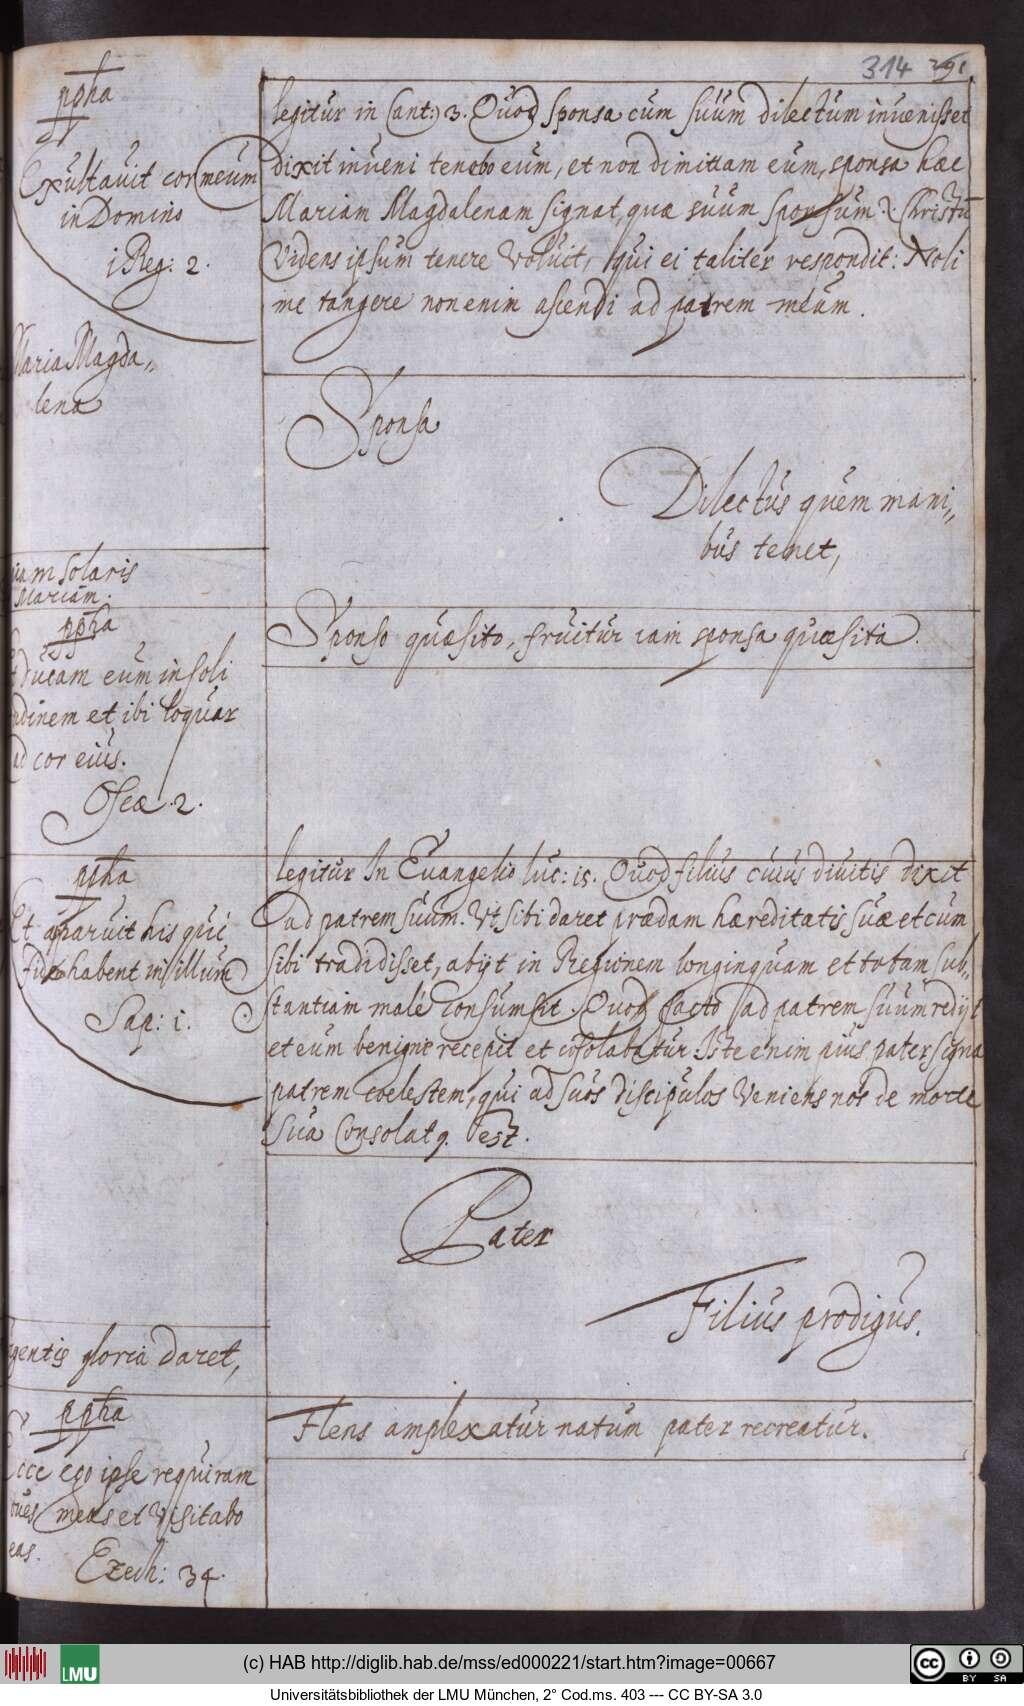 314 291
ppha
Exultauit cor meum
in Domino
i Reg: 2.
legitur in Cant: 3. Quod sponsa cum suum dilectum inuenisset
dixit inueni tenebo eum, et non dimittam eum, sponsa haec
Mariam Magdalenam signat, quae suum sponsum .i. Christū
Videns ipsum tenere voluit, qui ei taliter respondit: Noli
me tangere non enim ascendi ad patrem meum.
Maria Magda„
lena
Sponsa
Dilectus quem mani„
bus tenet,
solaris
Mariam.
Sponso quaesito, fruitur iam sponsa quaesita.
ppha
ducam eum in soli
dinem et ibi loquar
ad cor eius.
Oseae .2.
ppha
Et aparuit his qui
fidē habent in illum
Sap: i.
legitur In Euangelio luc: 15. Quod filius cuius diuitis dixit
ad patrem suum. Vt sibi daret praedam haereditatis suae et cum
sibi tradidisset, abijt in Regionem longinquam et totam sub„
stantiam malè Consumsit. Quod facto ad patrem suum redijt
et eum benigne recepit et cōsolabatur. Iste enim pius pater signa
patrem coelestem, qui ad suos discipulos Veniens nos de morte
sua Consolatq. est.
Pater
Filius prodigus.
gentis gloria daret,
Flens amplexatur natum pater recreatur.
ppha
Ecce ego ipse requiram
oues meas et Visitabo
eas.
Ezech: 34.
LMU
(c) HAB http://diglib.hab.de/mss/ed000221/start.htm?image=00667
cc BY SA
Universitätsbibliothek der LMU München, 2° Cod.ms. 403 --- CC BY-SA 3.0